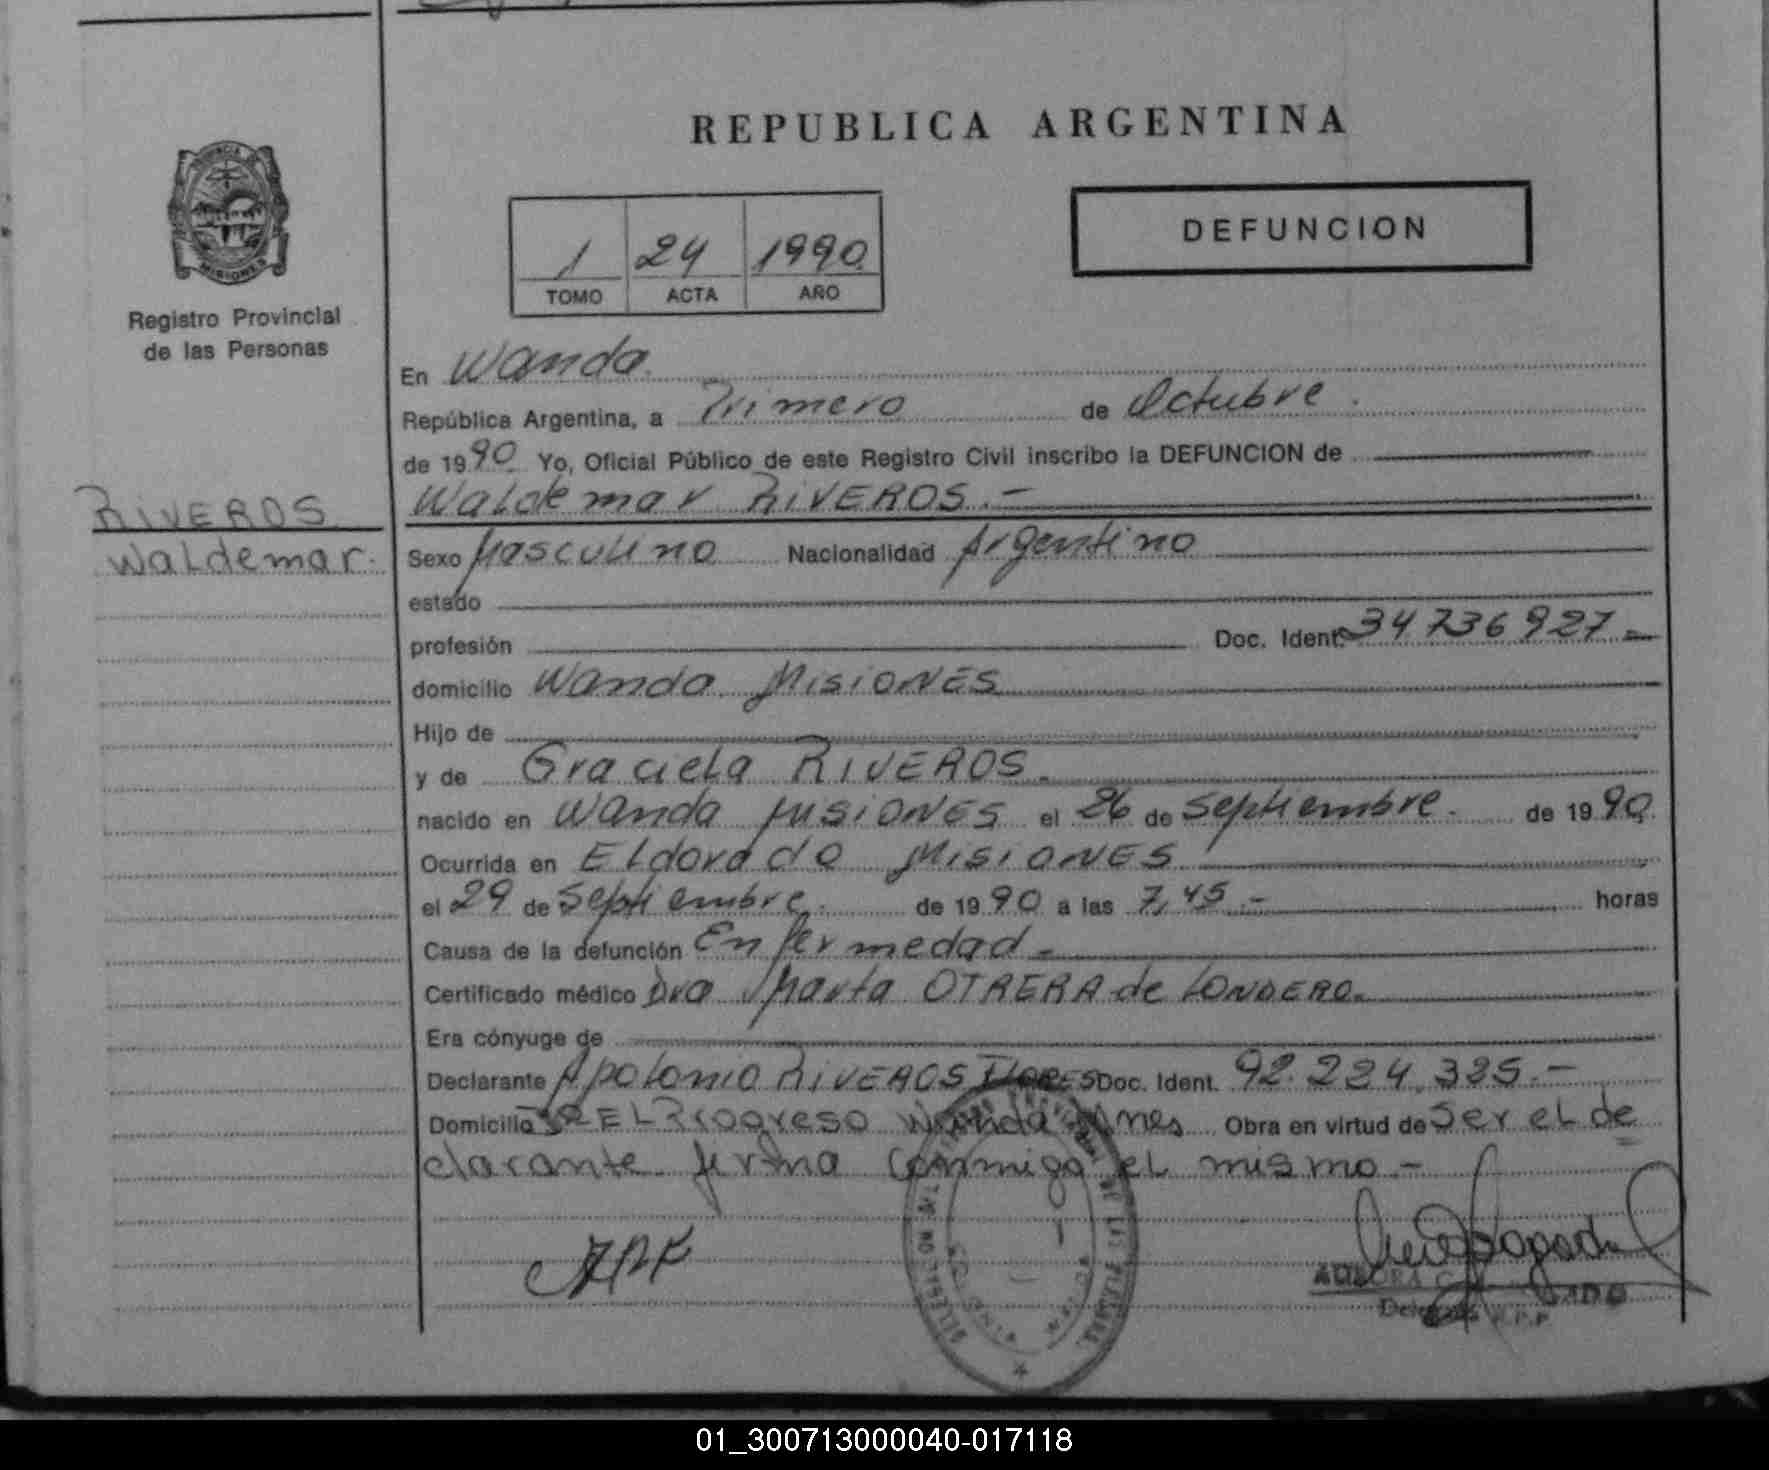 REPUBLICA ARGENTINA
PROVINCIA DE
MISIONES
Registro Provincial
de las Personas
1 24 1990
TOMO ACTA AÑO
DEFUNCION
En Wanda.
República Argentina, a Primero de Octubre.
de 1990. Yo, Oficial Público de este Registro Civil inscribo la DEFUNCION de
RIVEROS
Waldemar.
Waldemar RIVEROS.-
Sexo Masculino Nacionalidad Argentino
estado
profesión Doc. Ident. 34736927-
domicilio Wanda Misiones
Hijo de
y de Graciela RIVEROS.
nacido en Wanda Misiones el 26 de Septiembre. de 1990.
Ocurrida en Eldorado Misiones
el 29 de Septiembre. de 1990 a las 7,45.- horas
Causa de la defunción Enfermedad-
Certificado médico Dra Marta OTRERA de LONDERO.
Era cónyuge de
Declarante Apolonio RIVEROS FLORES Doc. Ident. 92.224.335.-
Domicilio EL Progreso Wanda Mnes Obra en virtud de Ser el de
clarante firma conmigo el mismo-
Delegada R.P.P
01_300713000040-017118